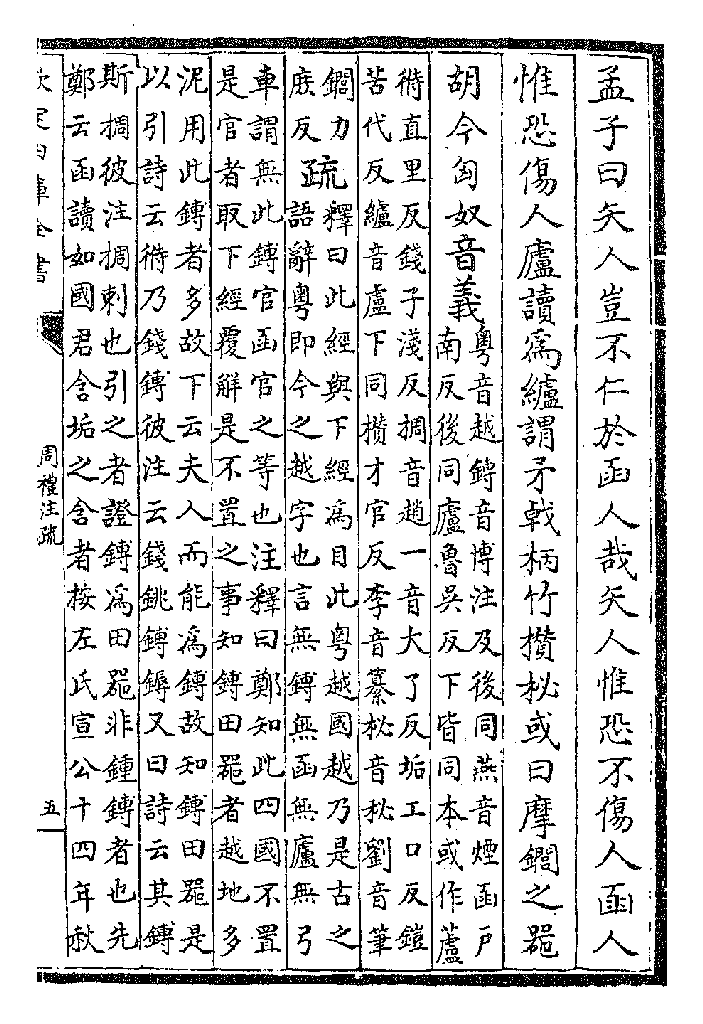 孟子曰矢人豈不仁於函人哉矢人惟恐不傷人函人
惟恐傷人廬讀為纑謂矛戟柄竹攅柲或曰摩鐧之器
胡今匈奴音義粤音越鎛音博注及後同燕音煙函戸
南反後同廬魯吳反下皆同本或作蘆
偫直里反錢子淺反挶音趙一音大了反垢工口反鎧
苦代反纑音盧下同攅才官反李音纂柲音秘劉音筆
鐧力
庶反疏釋曰此經與下經為目此粤越國越乃是古之
語辭粤即今之越字也言無鎛無函無廬無弓
車謂無此鎛官函官之等也注釋曰鄭知此四國不置
是官者取下經覆解是不置之事知鎛田器者越地多
泥用此鎛者多故下云夫人而能為鎛故知鎛田器是
以引詩云偫乃錢鎛彼注云錢銚鎛鎒又曰詩云其鎛
斯挶彼注挶刺也引之者證鎛為田器非鍾鎛者也先
鄭云函讀如國君含垢之含者按左氏宣公十四年秋
欽定四庫全書
周禮注疏
五